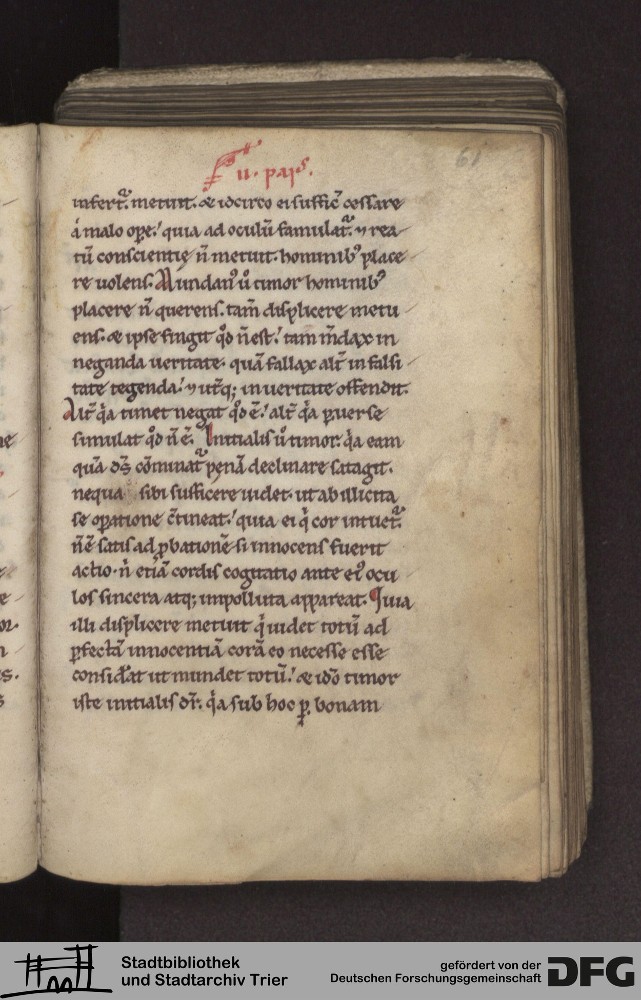 61
.ii. pars.
infert᷑. metuit. & idcirco ei suffic̄ cessare
á malo oꝑe. quia ad oculū famulat᷑. ⁊ rea
tū conscientię n̄ metuit. hominibꝰ place
re uolens. Mundanꝰ ū timor hominibꝰ
placere n̄ querens. tam̄ displicere metu
ens. & ipse fingit qd̄ n̄ est. tam m̄dax in
neganda ueritate. quā fallax alt̄ in falsi
tate tegenda. ⁊ utq; in ueritate offendit.
Alt̄ qͥa timet negat qd̄ ē. alt̄ qͥa ꝑuerse
simulat qd̄ n̄ ē. Initialis ū timor. qͥa eam
quā dn̄s cōminat᷑ penā declinare satagit.
nequa sibi sufficere uidet. ut ab illicita
se oꝑatione c̄tineat. quia ei qͥ cor intuet᷑.
n̄ ē satis ad ꝓbationē si innocens fuerit
actio. n̄ etiā cordis cogitatio ante eiꝰ ocu
los sincera atq; impolluta appareat. Quia
illi displicere metuit qͥ uidet totū ad
ꝑfectā innocentiā corā eo necesse esse
considerat ut mundet totū. & ido̅ timor
iste initialis dr̄. qͥa sub hoc ꝑ bonam
Stadtbibliothek
und Stadtarchiv Trier
gefördert von der
Deutschen Forschungsgemeinschaft
DFG